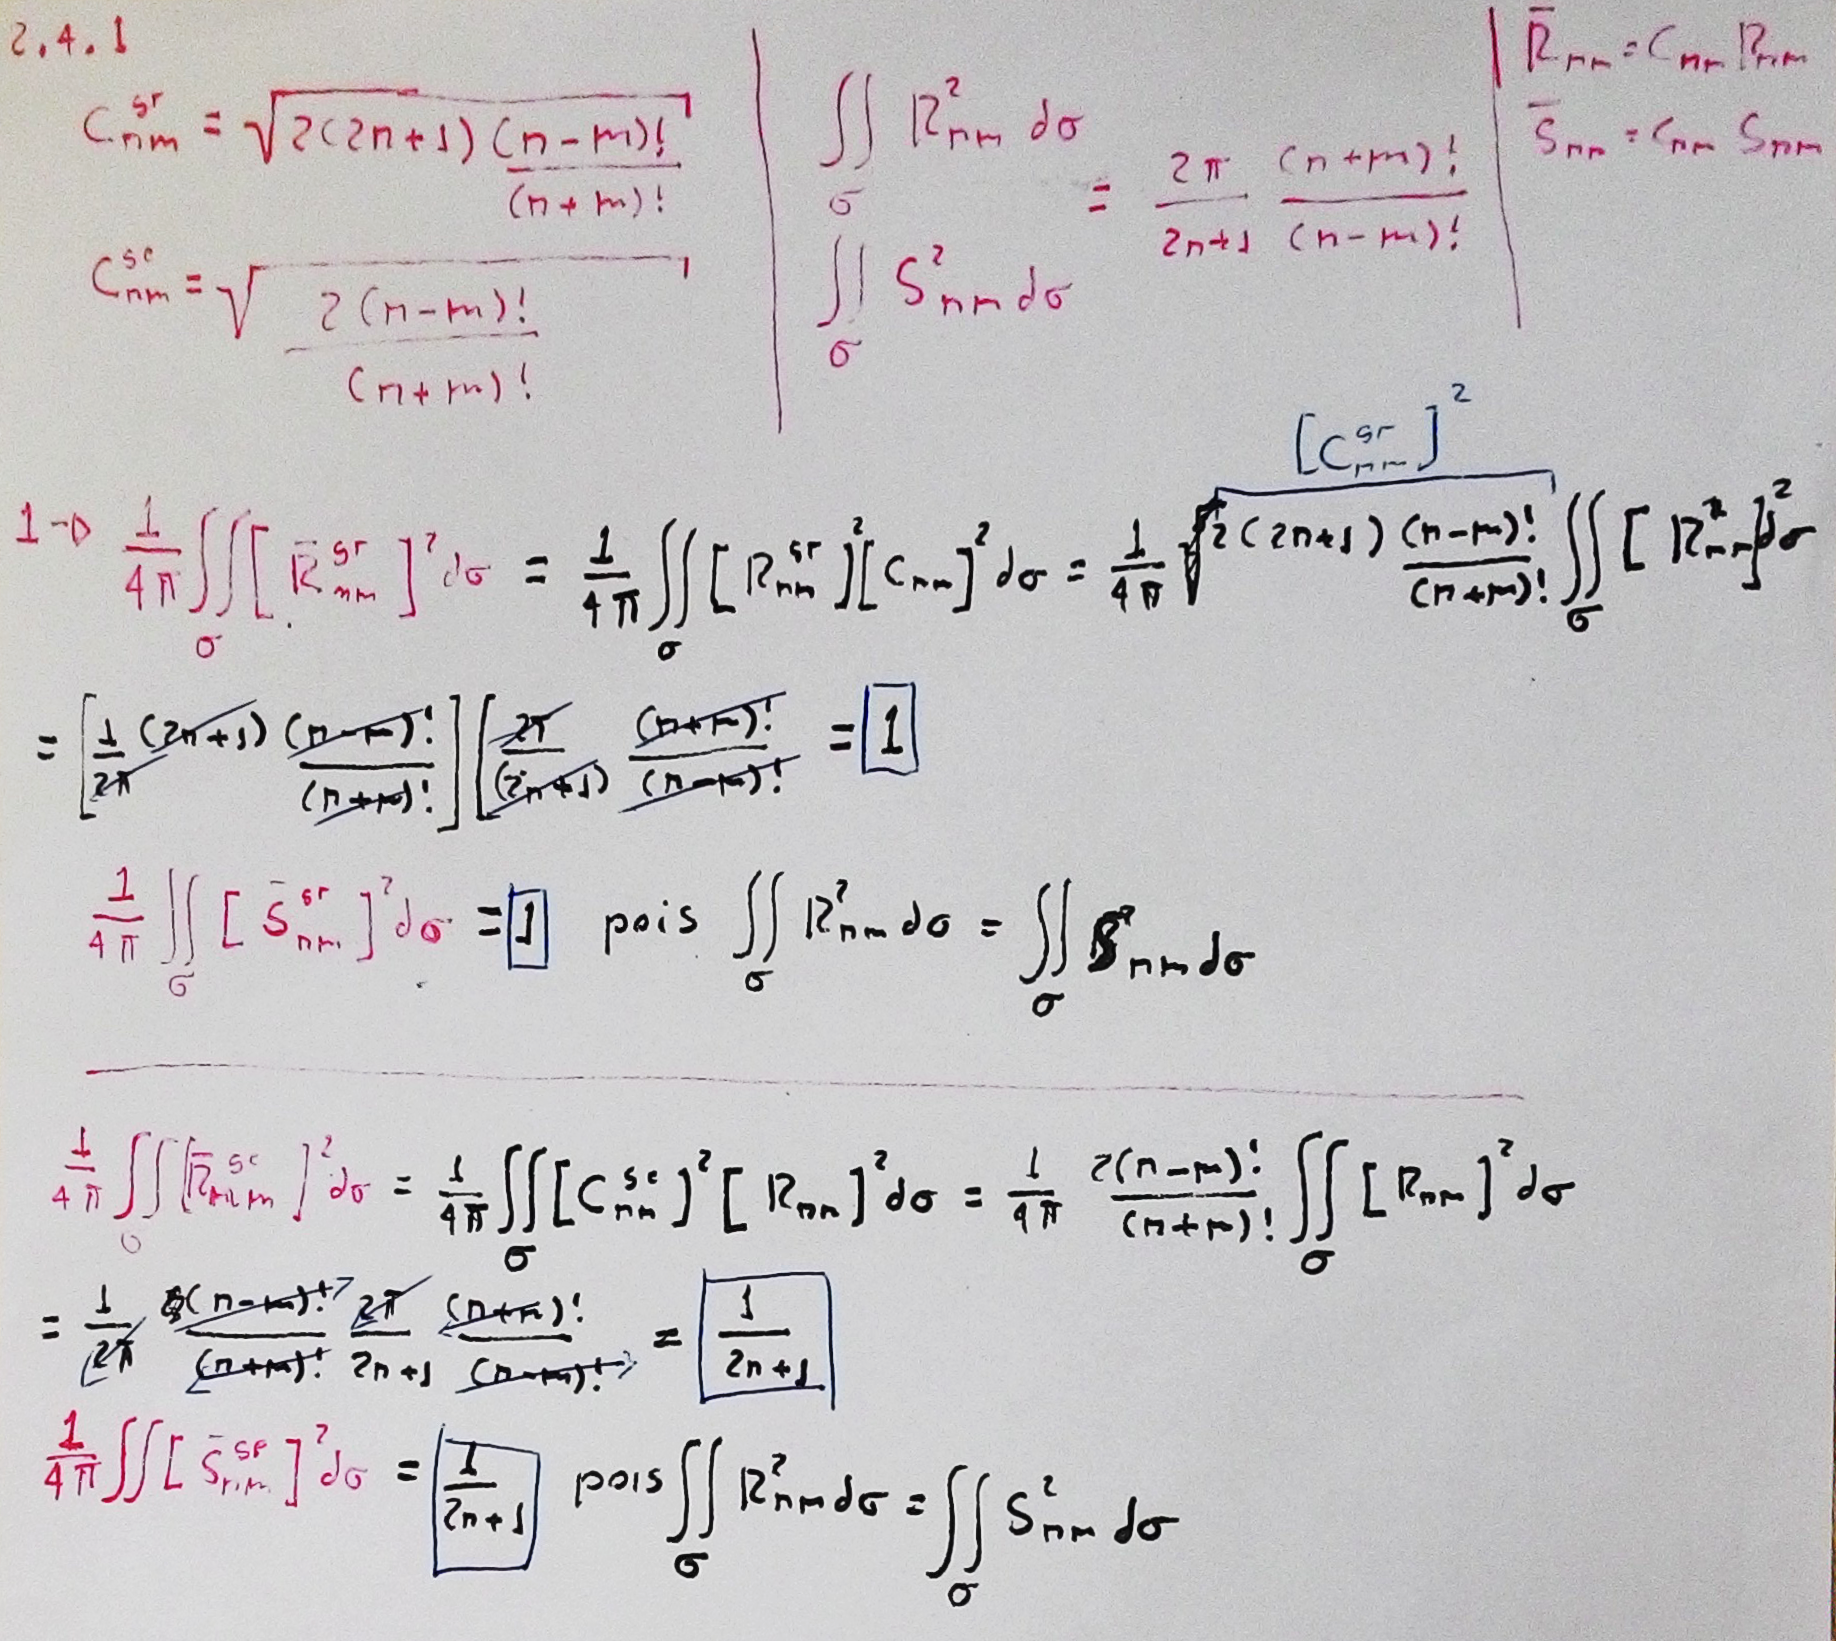 2.4.1
C_{nm}^{sr} = √(2(2n+1) (n-m)!/(n+m)!)
C_{nm}^{sc} = √(2(n-m)!/(n+m)!)
∬_σ R²_{nm} dσ
∬_σ S²_{nm} dσ
= 2π/(2n+1) (n+m)!/(n-m)!
R̄_{nm} = C_{nm} R_{nm}
S̄_{nm} = C_{nm} S_{nm}
[C_{nm}^{sr}]²
1→ 1/4π ∬_σ [R̄_{nm}^{sr}]² dσ = 1/4π ∬_σ [R_{nm}^{sr}]² [C_{nm}]² dσ = 1/4π 2(2n+1) (n-m)!/(n+m)! ∬_σ [R_{nm}]² dσ
= [1/2π (2n+1) (n-m)!/(n+m)!] [2π/(2n+1) (n+m)!/(n-m)!] = 1
1/4π ∬_σ [S̄_{nm}^{sr}]² dσ = 1 pois ∬_σ R²_{nm} dσ = ∬_σ S²_{nm} dσ
1/4π ∬_σ [R̄_{nm}^{sc}]² dσ = 1/4π ∬_σ [C_{nm}^{sc}]² [R_{nm}]² dσ = 1/4π 2(n-m)!/(n+m)! ∬_σ [R_{nm}]² dσ
= 1/2π (n-m)!/(n+m)! 2π/(2n+1) (n+m)!/(n-m)! = 1/(2n+1)
1/4π ∬ [S̄_{nm}]² dσ = 1/(2n+1) pois ∬_σ R²_{nm} dσ = ∬_σ S²_{nm} dσ